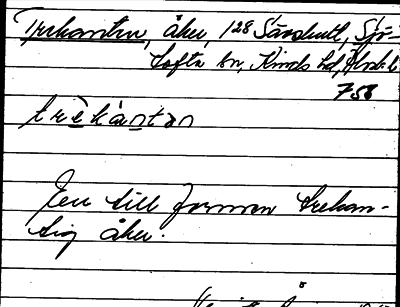 Trekanten, åker, 128 Särshult, Sjö-
tofta sn, Kinds hd, Älvsb. l.
758
trèkántən
En till formen trekan-
tig åker.